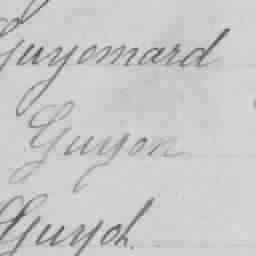 Guyomard
Guyon
Guyoh